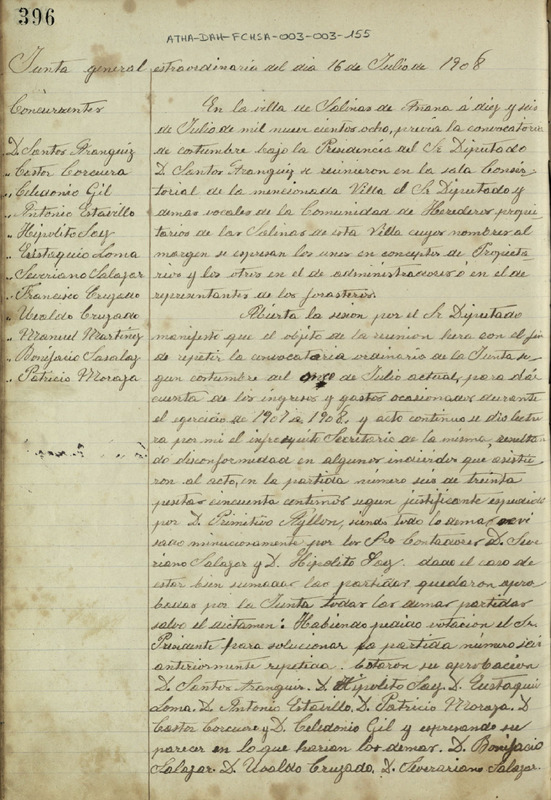 396
ATHA-DAH-FCHSA-003-003-155
Junta general extraordinaria del dia 16 de Julio de 1908
Concurrentes
D. Santos Aranguiz
" Castor Corcuera
" Celedonio Gil
" Antonio Estavillo
" Hipolito Saez
" Eustaquio Loma
" Severiano Salazar
" Francisco Cruzado
" Uvaldo Cruzado
" Manuel Martinez
" Bonifacio Salazar
" Patricio Moraza
En la villa de Salinas de Añana á diez y seis
de Julio de mil nuevecientos ocho, previa la convocatoria
de costumbre bajo la Presidencia del Sr Diputado
D. Santos Aranguiz se reunieron en la sala Consis-
torial de la mencionada Villa el Sr Diputado y
demas vocales de la Comunidad de Herederos propie
tarios de las Salinas de esta Villa cuyos nombres al
margen se espresan los unos en concepto de Propieta
rios y los otros en el de administradores o en el de
representantes de los forasteros.
Abierta la sesion por el Sr Diputado
manifesto que el objeto de la reunion hera con el fin
de repetir la convocatoria ordinaria de la Junta se-
gun costumbre del once de Julio actual, para dár
cuenta de los ingresos y gastos ocasionados durante
el egercicio de 1907 a 1908, y acto continuo se dio lectu
ra por mi el infrascrito Secretario de la misma, resultan
do disconformidad en algunos individuos que asistie
ron al acto, en la partida número seis de treinta
pesetas cincuenta centimos segun justificante espedido
por D. Primitivo Ayllon, siendo todo lo demas revi
sado minuciosamente por los Srs Contadores D. Seve
riano Salazar y D. Hipolito Saez dado el caso de
estar bien sumadas las partidas quedaron apro
badas por la Junta todas las demas partidas
salvo el dictamen: Habiendo pedido votacion el Sr.
Presidente para solucionar la partida número seis
anteriormente repetida. Votaron su aprobacion
D. Santos Aranguiz. D. Hipolito Saez. D. Eustaquio
Loma. D. Antonio Estavillo. D. Patricio Moraza. D.
Castor Corcuera y D. Celedonio Gil y espresando su
parecer en lo que harian los demas. D. Bonifacio
Salazar. D. Uvaldo Cruzado. D. Severariano Salazar.